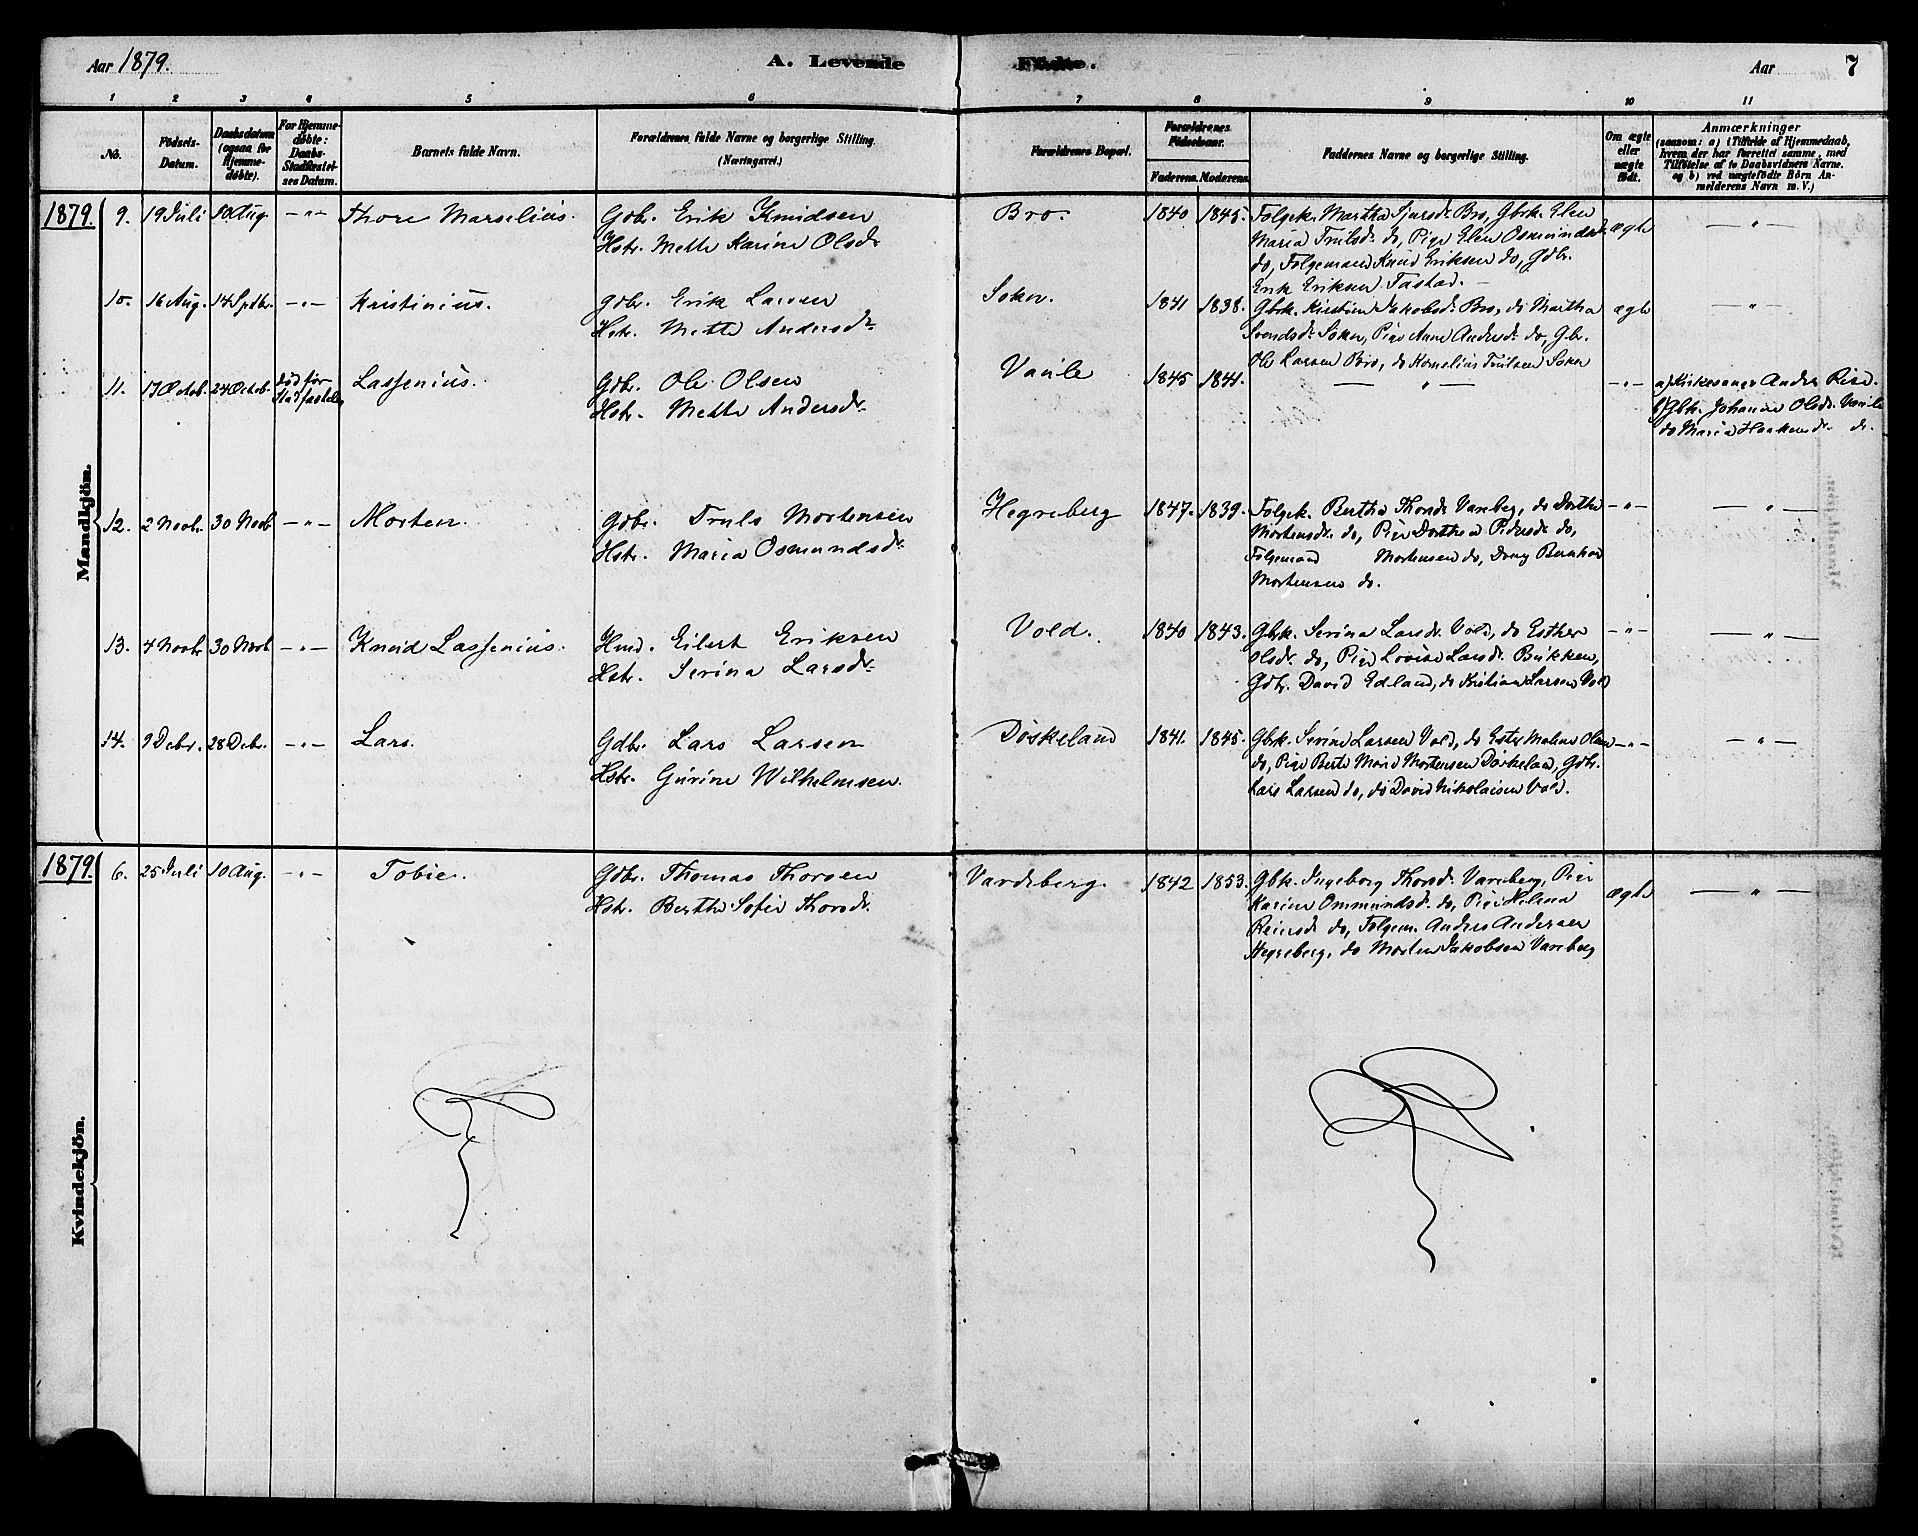 Aar 1879.
A. Levende Fødte.
Aar
7
1 2 3 4 5 6 7 8 9 10 11
No.
Födsels-
Datum.
Daabsdatum
(ogsaa for
Hjemme-
døbte).
For Hjemme-
døbte:
Daabs-
Stadfæstel-
ses Datum.
Barnets fulde Navn.
Forældrenes fulde Navne og borgerlige Stilling.
(Næringsvei.)
Forældrenes Bopæl.
Forældrenes
Födselsaar.
Faderens. Moderens.
Faddernes Navne og borgerlige Stilling.
Om ægte
eller
uægte
født.
Anmærkninger
(saasom: a) i Tilfælde af Hjemmedaab,
hvem der har forrettet samme, med
Tilföielse af to Daabsvidners Navne.
og b) ved uægtefödte Börn An-
melderens Navn m. V.)
Mandkjön.
1879. 9. 19 Juli 10 Aug. -"- Thore Marselius. Gdbr. Erik Knudsen
Hstr. Mette Karine Olsdr.
Bro. 1840 1845. Folgek. Martha Sjursdr. Bro, Gbrk. Elen
Maria Trulsdr. do, Pige Elen Osmundsdr. ægte -"-
do, Folgemand Knud Eriksen do, Gdbr.
Erik Eriksen Fastad.
10. 16 Aug. 14 Spdbr. -"- Kristinius. Gdbr. Erik Larsen
Hstr. Mette Andersdr.
Sokn. 1841 1838. Gbrk. Kirstine Jakobsdr. Bro, do Martha ægte -"-
Svendsdr. Sokn, Pige Anne Andersdr. do, Gbr.
Ole Larsen Bro, do Kornelius Trulsen Sokn
11. 17 Octob. 24 Octob. død før
Stadfæstelse Lassenius. Gdbr. Ole Olsen
Hstr. Mette Andersdr.
Vaule 1845 1841. -"- -"- a) Kirkesanger Andr. Rise.
b) Gbk. Johanne Olsdr. Vaule
do Maria Haakensdr. do.
12. 2 Novbr. 30 Novb. -"- Morten. Gdbr. Truls Mortensen
Hstr. Maria Osmundsdr.
Hegreberg 1847. 1839. Folgek. Bertha Thorsdr. Vareberg, do Dorthe -"- -"-
Mortensdr. do, Pige Dorthea Pedersdr. do,
Folgemand Mortensen do, Dreng Bernhard
Mortensen do.
13. 4 Novbr 30 Novb -"- Knud Lassenius. Hmd. Eilert Eriksen
Hstr. Serina Larsdr.
Vold. 1840 1843. Gbrk. Serina Larsdr. Vold, do Esther -"- -"-
Olsdr. do, Pige Lovise Larsdr. Bukken,
Gdbr. David Edland, do Kristian Larsen Vold
14. 9 Debr. 28 Debr. -"- Lars. Gdbr. Lars Larsen
Hstr. Gurine Wilhelmsen.
Døskeland 1841. 1845. Gbrk. Serine Larsen Vold, do Ester Maline Olsen -"- -"-
do, Pige Berte Marie Mortensen Døskeland, Gdbr.
Lars Larsen do, do David Nikolaisen Vold.
Kvindekjön.
1879. 6. 25 Juli 10 Aug. -"- Tobie. Gdbr. Thomas Thorsen
Hstr. Berthe Sofie Thorsdr.
Vardeberg. 1842 1853. Gbk. Ingeborg Thorsdr. Vareberg, Pige
Karine Ommundsdr. do, Pige Helena ægte -"-
Reiersdr. do, Folgem. Anders Andersen
Hegreberg, do Morten Jakobsen Vareberg